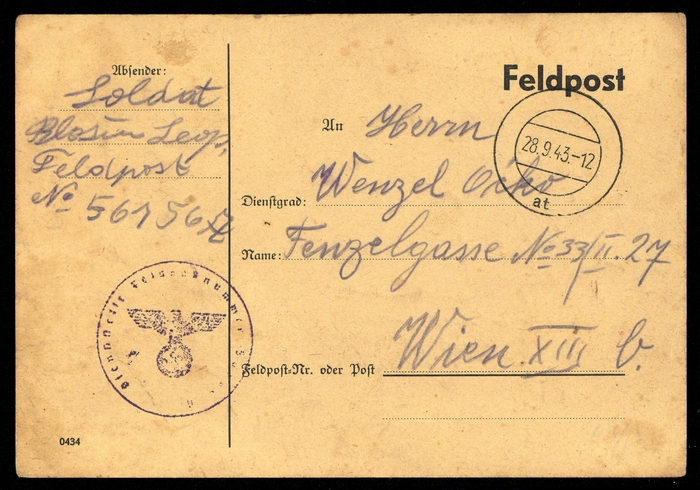 Absender:
Soldat
Blosun Leop.
Feldpost
No 56156 A
Feldpost
An Herrn
28.9.43.-12
at
Dienstgrad: Wenzel
Name: Fenzelgasse No 33/II. 27
Feldpost-Nr. oder Post Wien XIII b.
Dienststelle Feldpostnummer
0434